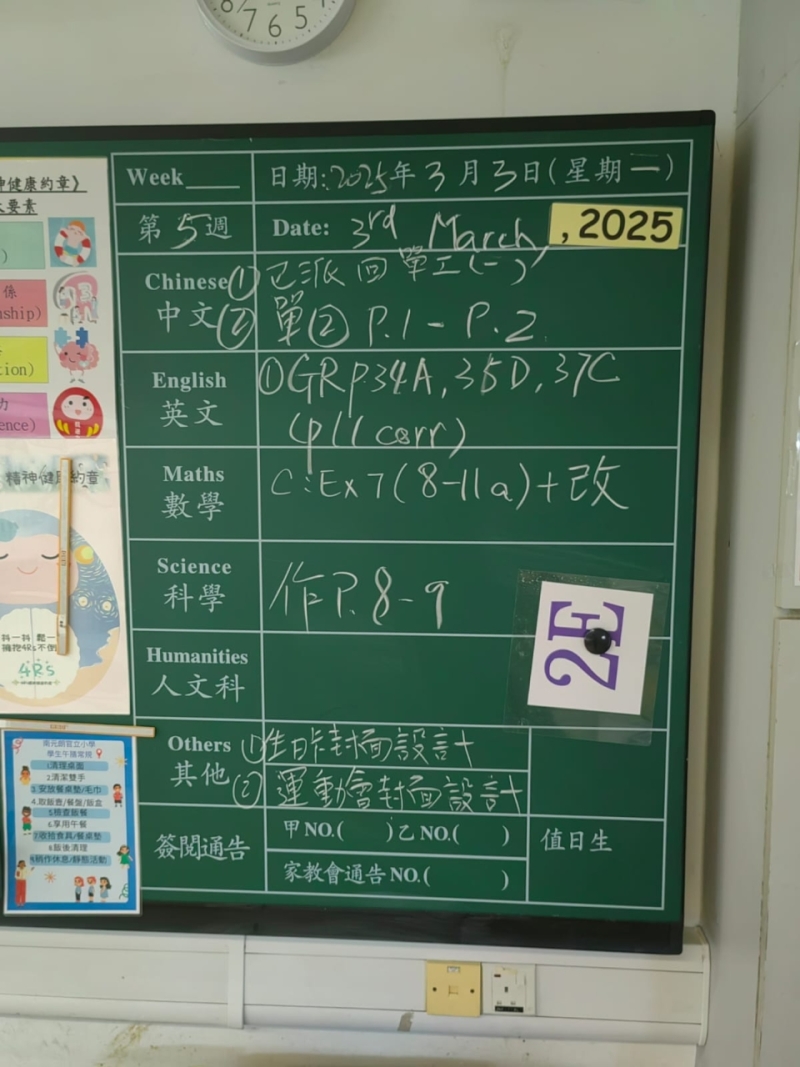 8 7 6 5
神健康約章》
要素
係
nship)
tion)
力
ence)
精神健康約章
抖一抖 鬆一
擁抱4Rs不倒
4Rs
學生午膳常規
1清理桌面
2清潔雙手
3.安放餐桌墊/毛巾
4.取飯壺/餐盤/飯盒
5檢查飯餐
6.享用午餐
7收拾食具/餐桌墊
8.飯後清理
9稍作休息/靜態活動
Week____ 日期:2025年3月3日(星期一)
第5週 Date: 3rd March, ,2025
Chinese ①已派回單工(一)
中文 ②單② P.1-P.2
English ①GR p.34A,35D,37C
英文 (p11 corr)
Maths C:Ex7(8-11a)+改
數學
Science 作P.8-9
科學
2E
Humanities
人文科
Others ①生日卡封面設計
其他 ②運動會封面設計
簽閱通告 甲NO.( )乙NO.( ) 值日生
家教會通告NO.( )